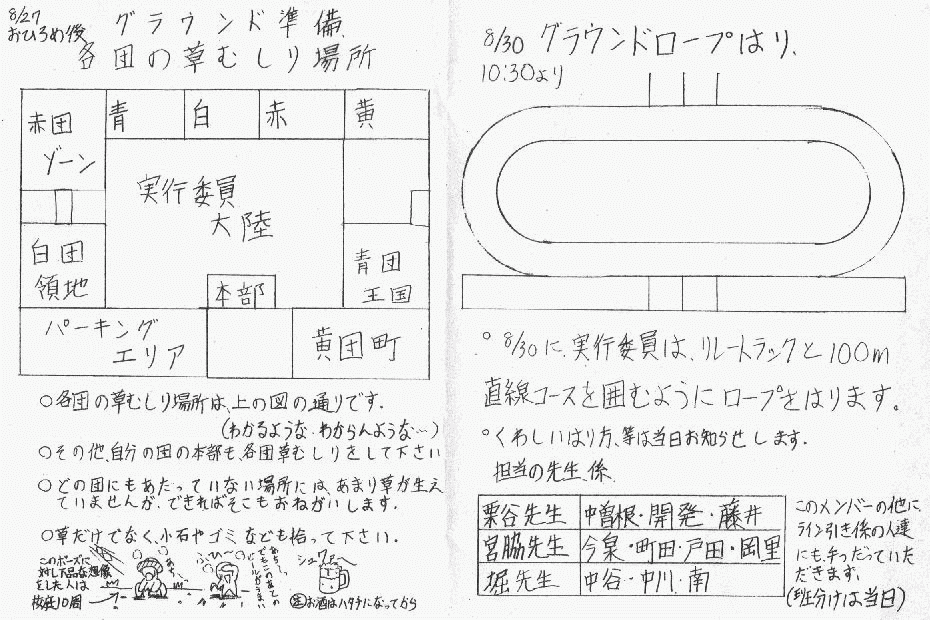 8/27
おひろめ後
グラウンド準備、
各団の草むしり場所
赤団
ゾーン
青
白
赤
黄
実行委員
大陸
白団
領地
青団
王国
本部
パーキング
エリア
黄団町
○各団の草むしり場所は、上の図の通りです。
(わかるような、わからんような〜)
○その他、自分の団の本部も、各団草むしりをして下さい
○どの団にもあたっていない場所には、あまり草が生え
ていませんが、できればそこもおねがいします。
○草だけでなく、小石やゴミなども拾って下さい。
このポーズに
対し下品な想像
をした人は
校庭10周
シュワァー
お酒はハタチになってから
8/30 グラウンドロープはり、
10:30より
○8/30に、実行委員は、リレートラックと100m
直線コースを囲むようにロープをはります。
○くわしいはり方、等は当日お知らせします。
担当の先生、係、
栗谷先生 中曽根・開発・藤井
宮脇先生 今泉・町田・戸田・岡里
堀先生 中谷・中川・南
このメンバーの他に
ライン引き係の人達
にも、手つだっていた
だきます。
(班分けは当日)